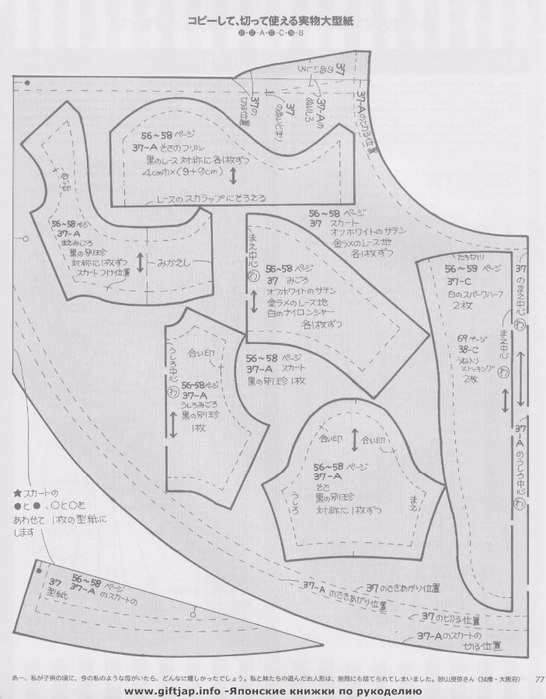 コピーして、切って使える実物大型紙
37
37-Aの切る位置
37の
切る位置
37
のぬいどまり
37-Aの
56~58ページ
37-A そでのフリル
黒のレース 対称に各1枚ずつ
4cm巾×(9+9cm)
レースのスカラップにそろえる
56~58ページ
37 スカート
オフホワイトのサテン
金ラメのレース地
各1枚ずつ
56~58ページ
37-A
まえみごろ
黒の別珍
対称に1枚ずつ
スカートつけ位置
みかえし
まえ中心 わ
56~58ページ
37 みごろ
オフホワイトのサテン
金ラメのレース地
白のナイロンシャー
各1枚ずつ
たちきり
56~58ページ
37-C
白のスパークハーフ
2枚
69ページ
38-C
うね入り
ストッキング
2枚
まえ中心 わ
37のまえ中心 わ
37-Aのうしろ中心 わ
うしろ中心 わ
合い印
56~58ページ
37-A
うしろみごろ
黒の別珍
1枚
56~58ページ
37-A スカート
黒の別珍 1枚
合い印
合い印
56~58ページ
37-A
そで
黒の別珍
対称に1枚ずつ
うしろ
まえ
★スカートの
●と●、○と○を
あわせて 1枚の型紙に
します
56~58ページ
37 37-Aのスカートの
型紙
37-Aのできあがり位置
37のできあがり位置
37の切る位置
37-Aのスカートの
切る位置
あー、私が子供の頃に、今の私のような母がいたら、どんなに嬉しかったでしょう。私と妹たちの遊んだお人形は、無残にも捨てられてしまいました。砂山良弥さん(34歳・大阪府)
77
www.giftjap.info -Японские книжки по рукоделию